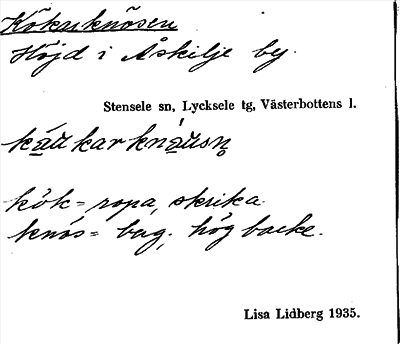 Kökarknösen
Höjd i Åskilje by.
Stensele sn, Lycksele tg, Västerbottens l.
kök = ropa, skrika.
knös = bag, hög backe.
Lisa Lidberg 1935.